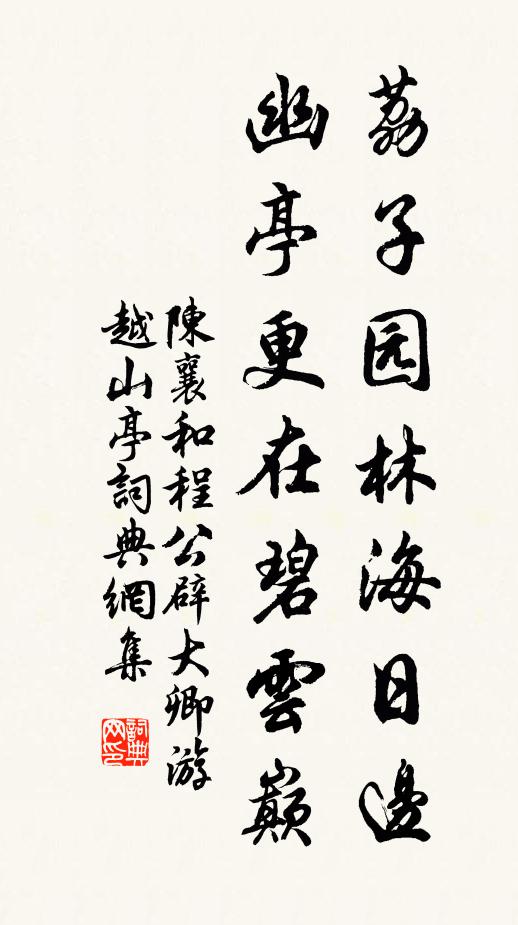 荔子园林海日邊
幽亭更在碧雲巔
陳襄和程公辟大卿游
越山亭詞典網集
詞典網印